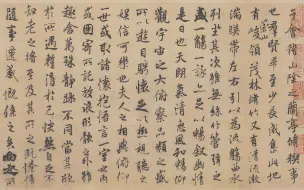 于會稽山陰之蘭亭脩禊事
也群賢畢至少長咸集此地
有峻領茂林脩竹又有清流激
湍暎帶左右引以為流觴曲水
列坐其次雖無絲竹管弦之
盛一觴一詠亦足以暢敘幽情
是日也天朗氣清惠風和暢仰
觀宇宙之大俯察品類之盛
所以遊目騁懷足以極視聽之
娛信可樂也夫人之相與俯仰
一世或取諸懷抱悟言一室之內
或因寄所託放浪形骸之外雖
趣舍萬殊靜躁不同當其欣
於所遇暫得於己快然自足不
知老之將至及其所之既惓情
隨事遷感慨係之矣向之所